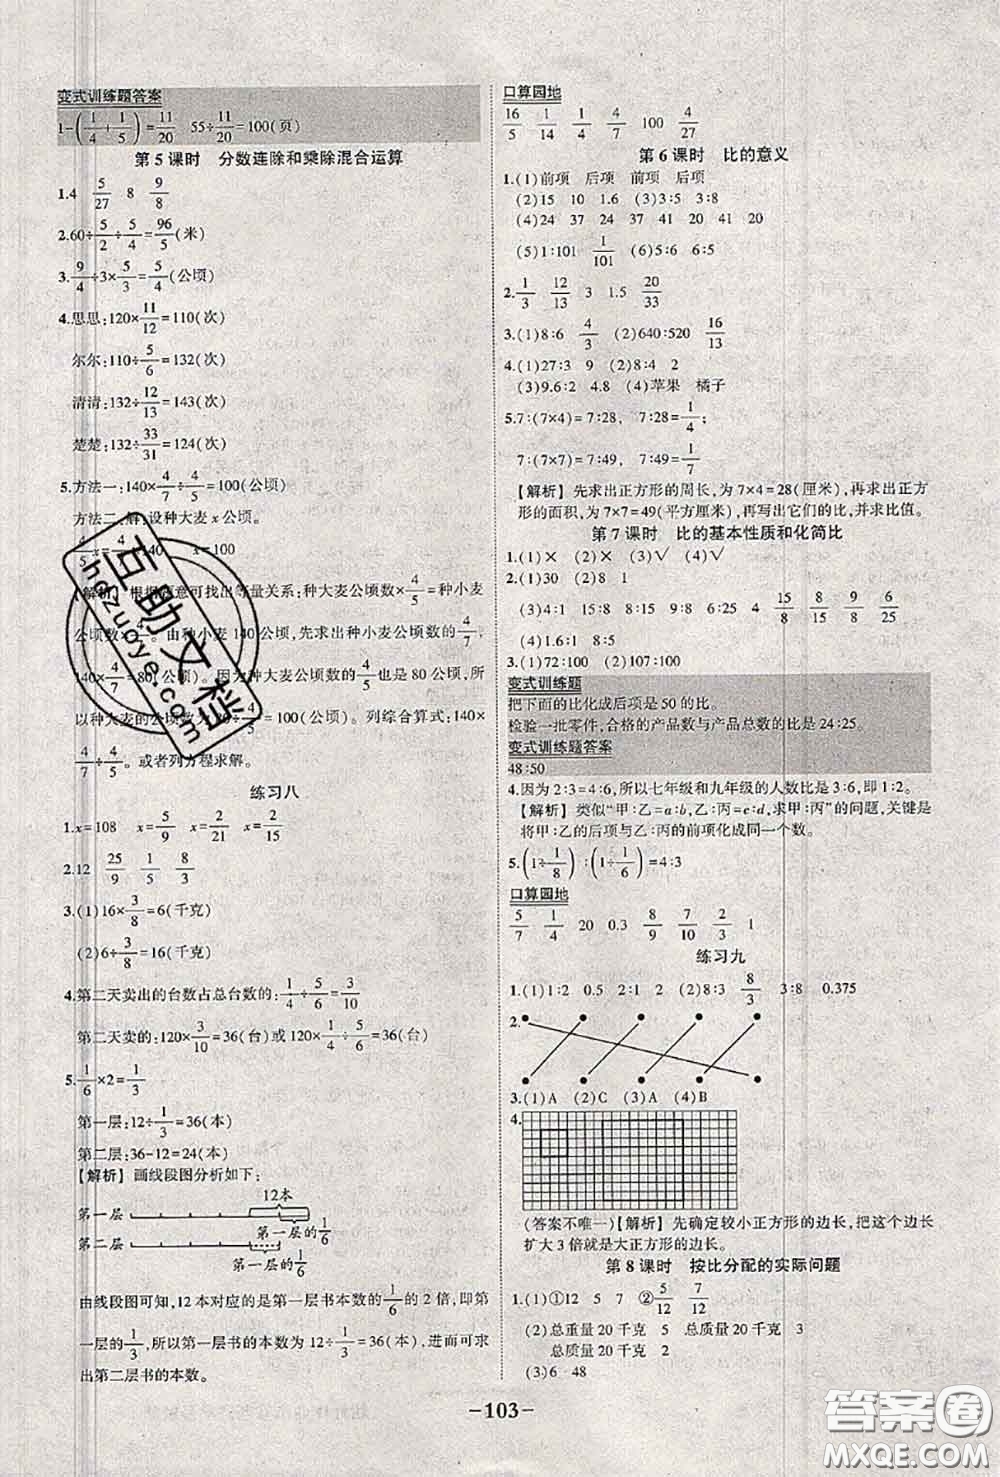 变式训练题答案
1-(1/4+1/5)=11/20 55÷11/20=100(页)
第 5 课时 分数连除和乘除混合运算
1.4 5/27 8 9/8
2.60÷5/2÷5/4=96/5(米)
3.9/4÷3×5/3=5/4(公顷)
4.思思:120×11/12=110(次)
尔尔:110÷5/6=132(次)
清清:132÷12/13=143(次)
楚楚:132÷33/31=124(次)
5.方法一:140×4/7÷4/5=100(公顷)
方法二:解:设种大麦 x 公顷。
4/5x=4/7×140 x=100
【解析】根据题意可找出等量关系:种大麦公顷数×4/5=种小麦
公顷数×4/7。由种小麦 140 公顷,先求出种小麦公顷数的4/7,
140×4/7=80(公顷)。因为大麦公顷数的4/5也是 80 公顷,所
以种大麦的公顷数为80÷4/5=100(公顷)。列综合算式:140×
4/7÷4/5。或者列方程求解。
练习八
1.x=108 x=5/9 x=2/21 x=2/15
2.12 25/9 1/5 8/3
3.(1)16×3/8=6(千克)
(2)6÷3/8=16(千克)
4.第二天卖出的台数占总台数的:1/4÷5/6=3/10
第二天卖的:120×3/10=36(台)或 120×1/4÷5/6=36(台)
5.1/6×2=1/3
第一层:12÷1/3=36(本)
第二层:36-12=24(本)
【解析】画线段图分析如下:
12本
第一层
第一层的1/6
第二层
第一层的1/6
由线段图可知,12 本对应的是第一层书本数的1/6的 2 倍,即第
一层的1/3,所以第一层书的本数为 12÷1/3=36(本),进而可求
出第二层书的本数。
口算园地
16/5 1/14 1/4 4/7 100 4/27
第 6 课时 比的意义
1.(1)前项 后项 前项 后项
(2)15 10 1.6 (3)3:5 3:8
(4)24 37 24 37 41 20 41 20
(5)1:101 1/101 (6)5:6 9:5
2.1/3 12/13 3 1.5 20/33
3.(1)8:6 4/3 (2)640:520 16/13
4.(1)27:3 9 (2)8:4 2
(3)9.6:2 4.8 (4)苹果 橘子
5.7:(7×4)=7:28, 7:28=1/4;
7:(7×7)=7:49, 7:49=1/7
【解析】先求出正方形的周长,为 7×4=28(厘米),再求出正方
形的面积,为 7×7=49(平方厘米),再写出它们的比,并求比值。
第 7 课时 比的基本性质和化简比
1.(1)× (2)× (3)√ (4)√
2.(1)30 (2)8:1
(3)4:1 4 15:8 9:25 4 15/8 8/15 9/8 6/25
(4)1.6:1 5:8
3.(1)72:100 (2)107:100
变式训练题
把下面的比化成后项是 50 的比。
检验一批零件,合格的产品数与产品总数的比是 24:25。
变式训练题答案
48:50
4.因为 2:3=4:6,所以七年级和九年级的人数比是 3:6,即 1:2。
【解析】类似“甲:乙=a:b,乙:丙=c:d,求甲:丙”的问题,关键是
将甲:乙的后项与乙:丙的前项化成同一个数。
5.(1÷1/8):(1÷1/6)=4:3
口算园地
5/7 1/4 20 0.3 8/9 7/10 2/3 1
练习九
1.(1)1:2 0.5 2:1 2 (2)8:3 8/3 3:8 0.375
2.
3.(1)A (2)C (3)A (4)B
4.
(答案不唯一)【解析】先确定较小正方形的边长,把这个边长
扩大 3 倍就是大正方形的边长。
第 8 课时 按比分配的实际问题
1.(1)①12 5 7 ②5/12 7/12
(2)总重量 20 千克 5 总质量 20 千克 3
总质量 20 千克 2
(3)6 48
-103-
互助文档
hdzuoye.com
答案圈
MXQE.COM